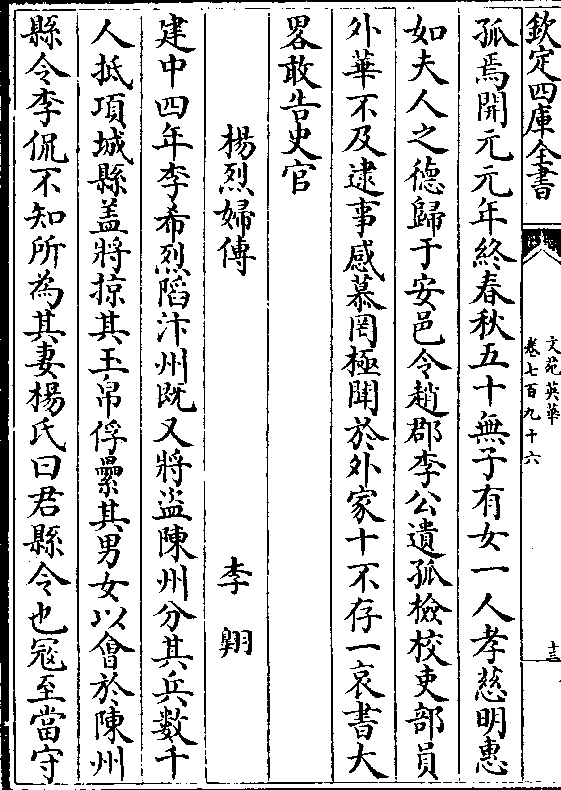 欽定四庫全書
文苑英華
卷七百九十六
十三
孤焉開元元年終春秋五十無子有女一人孝慈明惠
如夫人之德歸于安邑令趙郡李公遺孤檢校吏部員
外華不及逮事感慕罔極聞於外家十不存一哀書大
畧敢告史官
楊烈婦傳
李翺
建中四年李希烈䧟汴州既又將盗陳州分其兵數千
人抵項城縣盖將掠其玉帛俘纍其男女以㑹於陳州
縣令李侃不知所為其妻楊氏曰君縣令也寇至當守